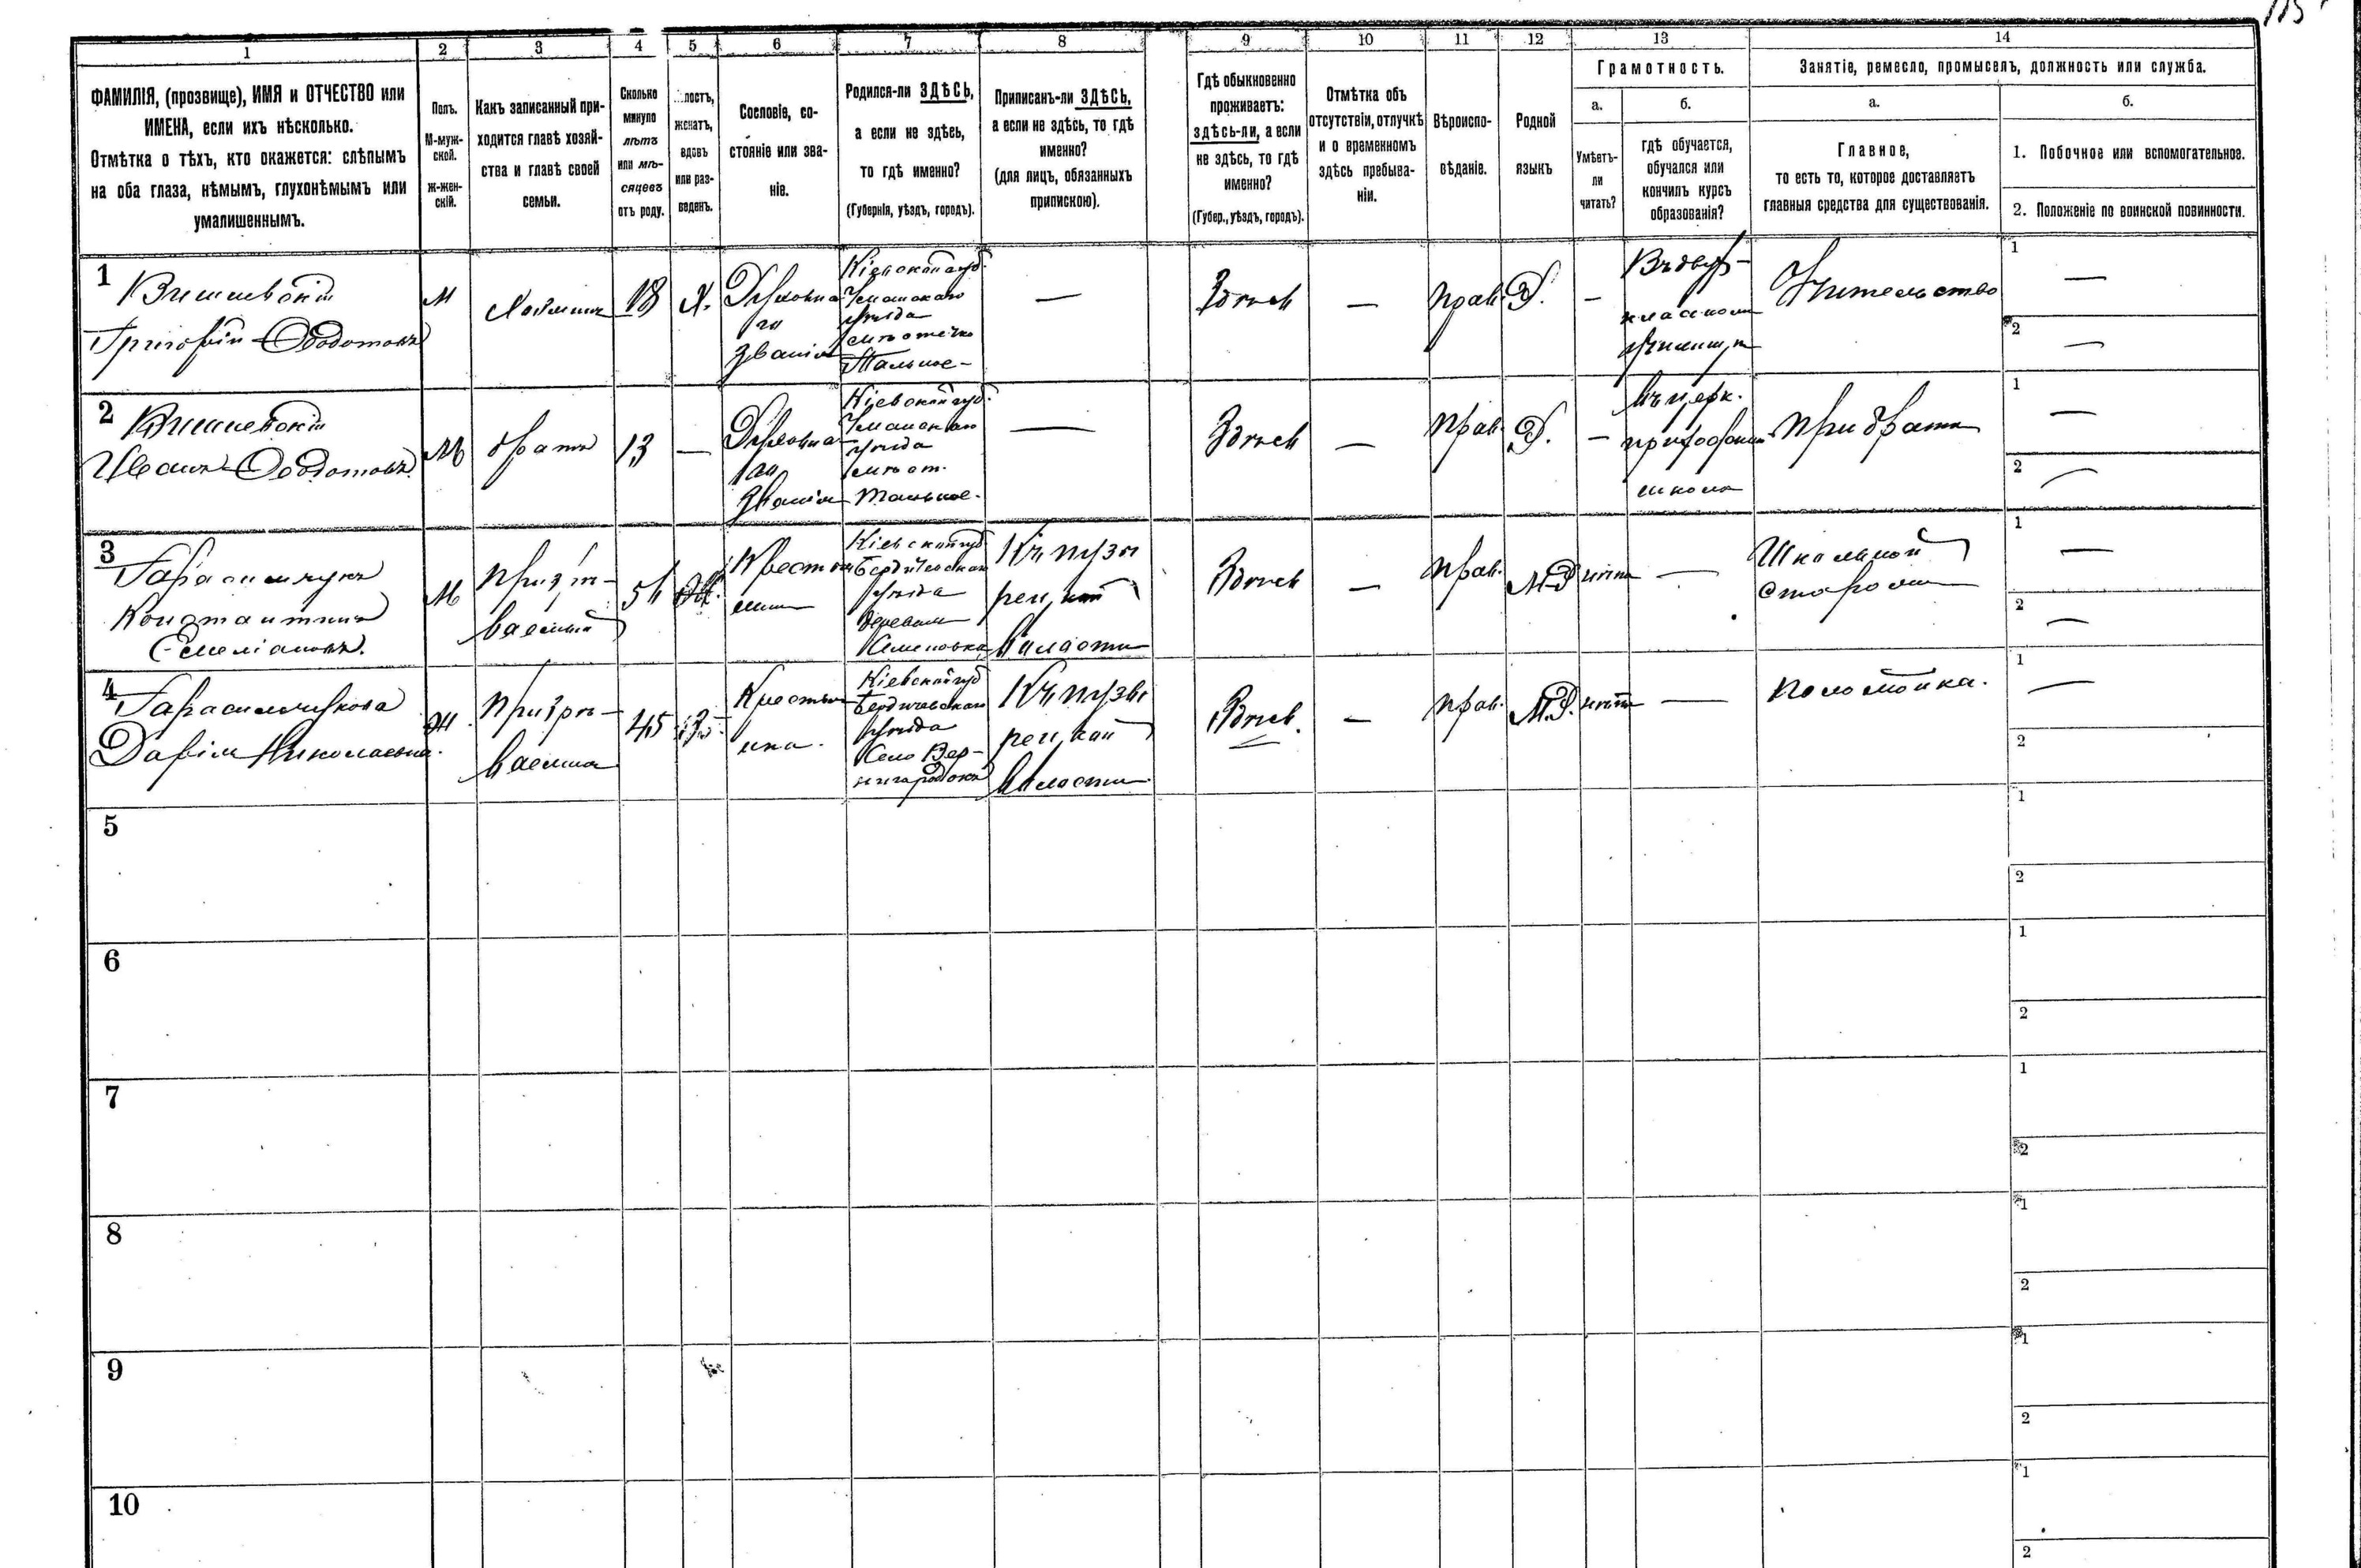 115
1
2
3
4
5
6
7
8
9
10
11
12
13
14
ФАМИЛІЯ, (прозвище), ИМЯ и ОТЧЕСТВО или
ИМЕНА, если ихъ нѣсколько.
Отмѣтка о тѣхъ, кто окажется: слѣпымъ
на оба глаза, нѣмымъ, глухонѣмымъ или
умалишеннымъ.
Полъ.
М-муж-
ской.
ж-жен-
скій.
Какъ записанный при-
ходится главѣ хозяй-
ства и главѣ своей
семьи.
Сколько
минуло
лѣтъ
или мѣ-
сяцевъ
отъ роду.
лостъ,
женатъ,
вдовъ
или раз-
веденъ.
Сословіе, со-
стояніе или зва-
ніе.
Родился-ли ЗДѢСЬ,
а если не здѣсь,
то гдѣ именно?
(Губернія, уѣздъ, городъ).
Приписанъ-ли ЗДѢСЬ,
а если не здѣсь, то гдѣ
именно?
(для лицъ, обязанныхъ
припискою).
Гдѣ обыкновенно
проживаетъ:
здѣсь-ли, а если
не здѣсь, то гдѣ
именно?
(Губер., уѣздъ, городъ).
Отмѣтка объ
отсутствіи, отлучкѣ
и о временномъ
здѣсь пребыва-
ніи.
Вѣроиспо-
вѣданіе.
Родной
языкъ
Грамотность.
а.
Умѣетъ-
ли
читать?
б.
гдѣ обучается,
обучался или
кончилъ курсъ
образованія?
Занятіе, ремесло, промыселъ, должность или служба.
а.
Главное,
то есть то, которое доставляетъ
главныя средства для существованія.
б.
1. Побочное или вспомогательное.
2. Положеніе по воинской повинности.
1
Вишневскій
Григорій Ѳеодотовъ
М
Хозяинъ
18
Х.
Духовна
го
званія
Кіевской губ.
Уманскаго
уѣзда
мѣстечко
Тальное
—
Здѣсь
—
Прав.
Р.
—
Въ двух-
классномъ
училищѣ
Учительство
1
—
2
—
2
Вишневскій
Иванъ Ѳеодотовъ
М
братъ
13
—
Духовна
го
званія
Кіевской губ.
Уманскаго
уѣзда
мѣст.
Тальное.
—
Здѣсь
—
Прав.
Р.
—
Въ церк.
приходской
школѣ
При братѣ
1
—
2
—
3
Гарасимчукъ
Константинъ
Емеліановъ.
М
54
Ж.
Кіевской губ
Бердичевскаго
уѣзда
деревни
волости
Здѣсь
—
Прав.
М.Р
нѣтъ
—
Школьной
Сторожъ
1
—
2
—
4
Гарасимчукова
Дарія Николаевна.
Ж.
Призрѣ-
ваемая
45
Крестья
нка.
Кіевской губ
Бердичевскаго
уѣзда
Село Вер-
нигородокъ
волости
Здѣсь.
—
Прав.
М.Р.
нѣтъ
—
Поломойка.
1
—
2
5
1
2
6
1
2
7
1
2
8
1
2
9
1
2
10
1
2